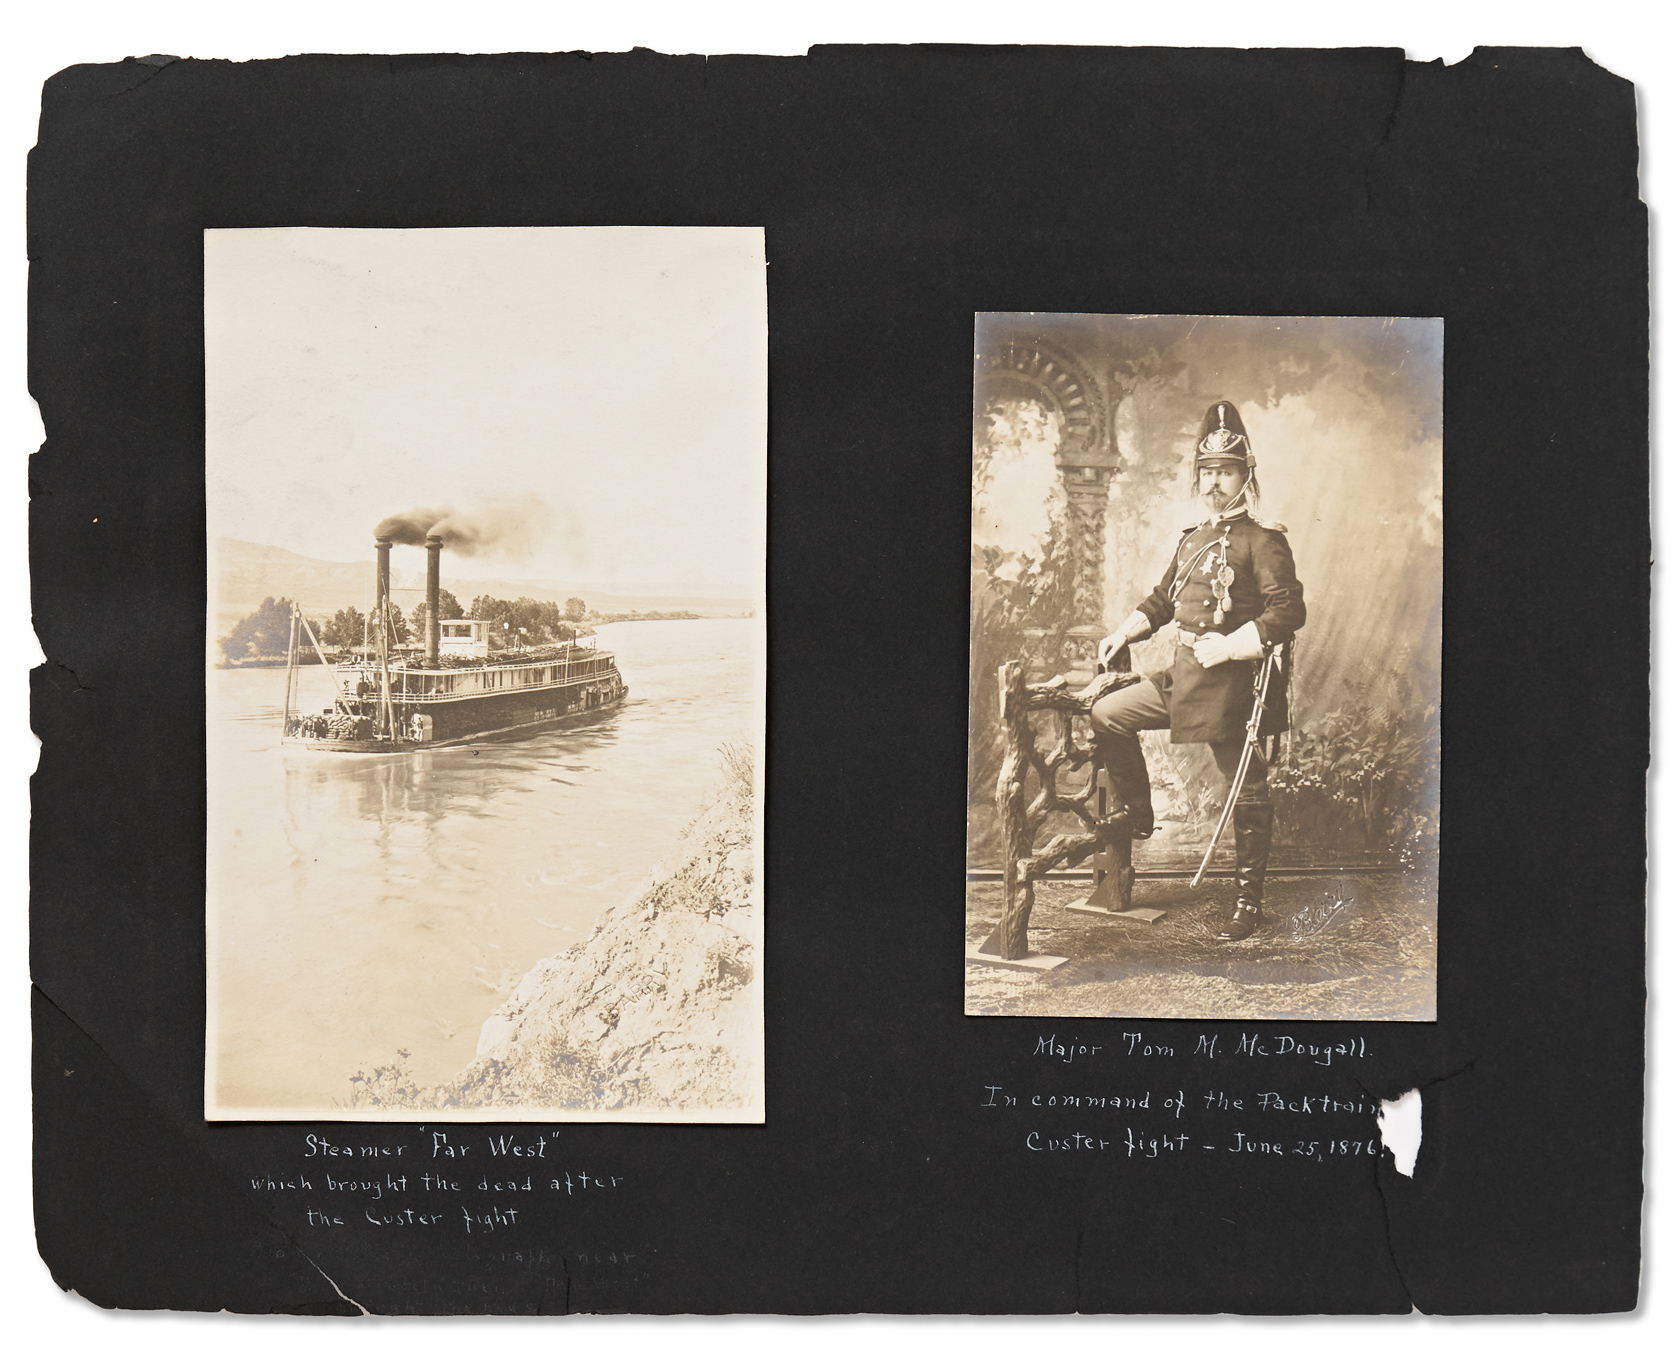 BARRY
Baird
Steamer "Far West"
which brought the dead after
the Custer fight
near
Major Tom M. McDougall.
In command of the Packtrain
Custer fight - June 25, 1876.